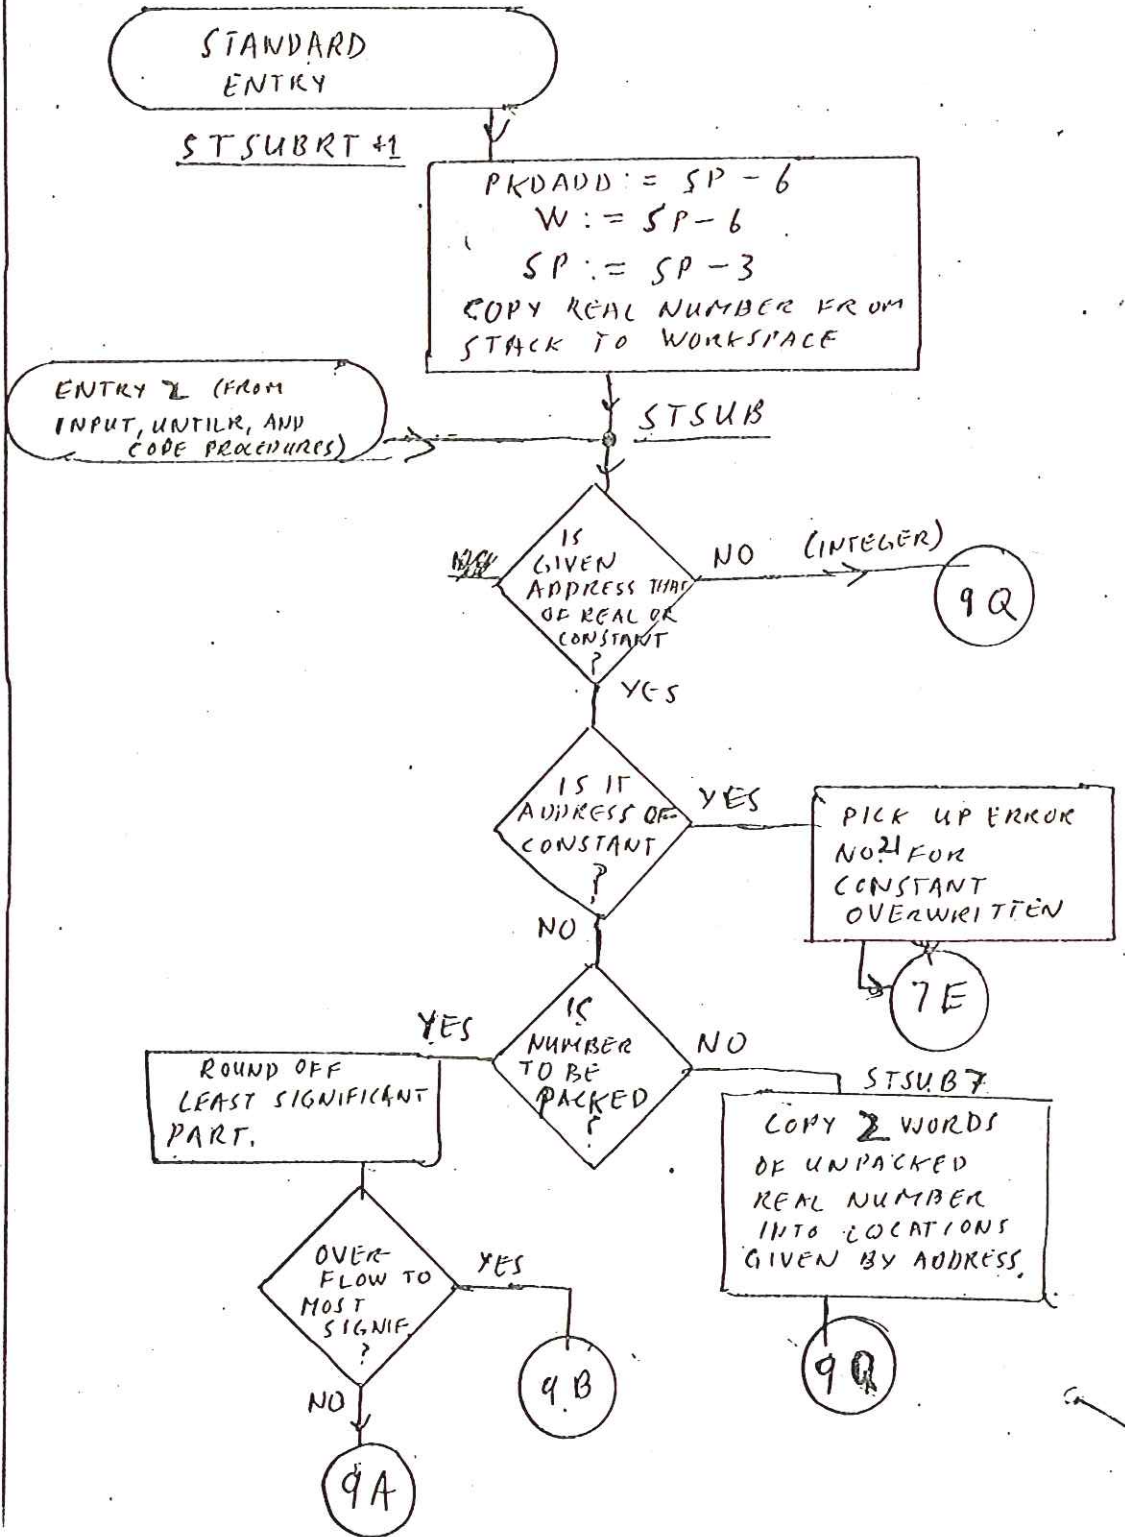 STANDARD
ENTRY
STSUBRT +1
PKDADD := SP - 6
W := SP - 6
SP := SP - 3
COPY REAL NUMBER FROM
STACK TO WORKSPACE
ENTRY 2 (FROM
INPUT, UNTILR, AND
CODE PROCEDURES)
STSUB
IS
GIVEN
ADDRESS THAT
OF REAL OR
CONSTANT
?
NO (INTEGER)
9Q
YES
IS IT
ADDRESS OF
CONSTANT
?
YES
PICK UP ERROR
NO. 21 FOR
CONSTANT
OVERWRITTEN
7E
NO
IS
NUMBER
TO BE
PACKED
?
YES
ROUND OFF
LEAST SIGNIFICANT
PART.
NO
STSUB7
COPY 2 WORDS
OF UNPACKED
REAL NUMBER
INTO LOCATIONS
GIVEN BY ADDRESS.
OVER-
FLOW TO
MOST
SIGNIF.
?
YES
9B
NO
9A